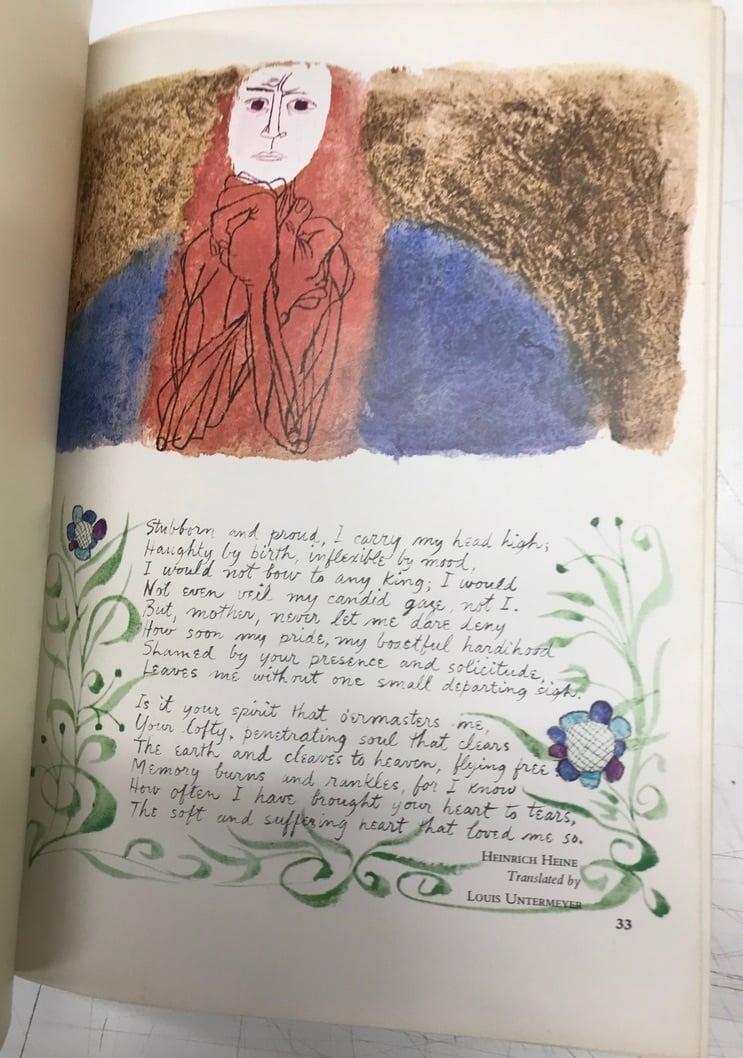 Stubborn and proud, I carry my head high;
Haughty by birth, inflexible by mood,
I would not bow to any king; I would
Not even veil my candid gaze, not I.
But, mother, never let me dare deny
How soon my pride, my boastful hardihood
Shamed by your presence and solicitude,
Leaves me without one small departing sigh.
Is it your spirit that o'ermasters me,
Your lofty, penetrating soul that clears
The earth and cleaves to heaven, flying free
Memory burns and rankles, for I know
How often I have brought your heart to tears,
The soft and suffering heart that loved me so.
HEINRICH HEINE
Translated by
LOUIS UNTERMEYER
33